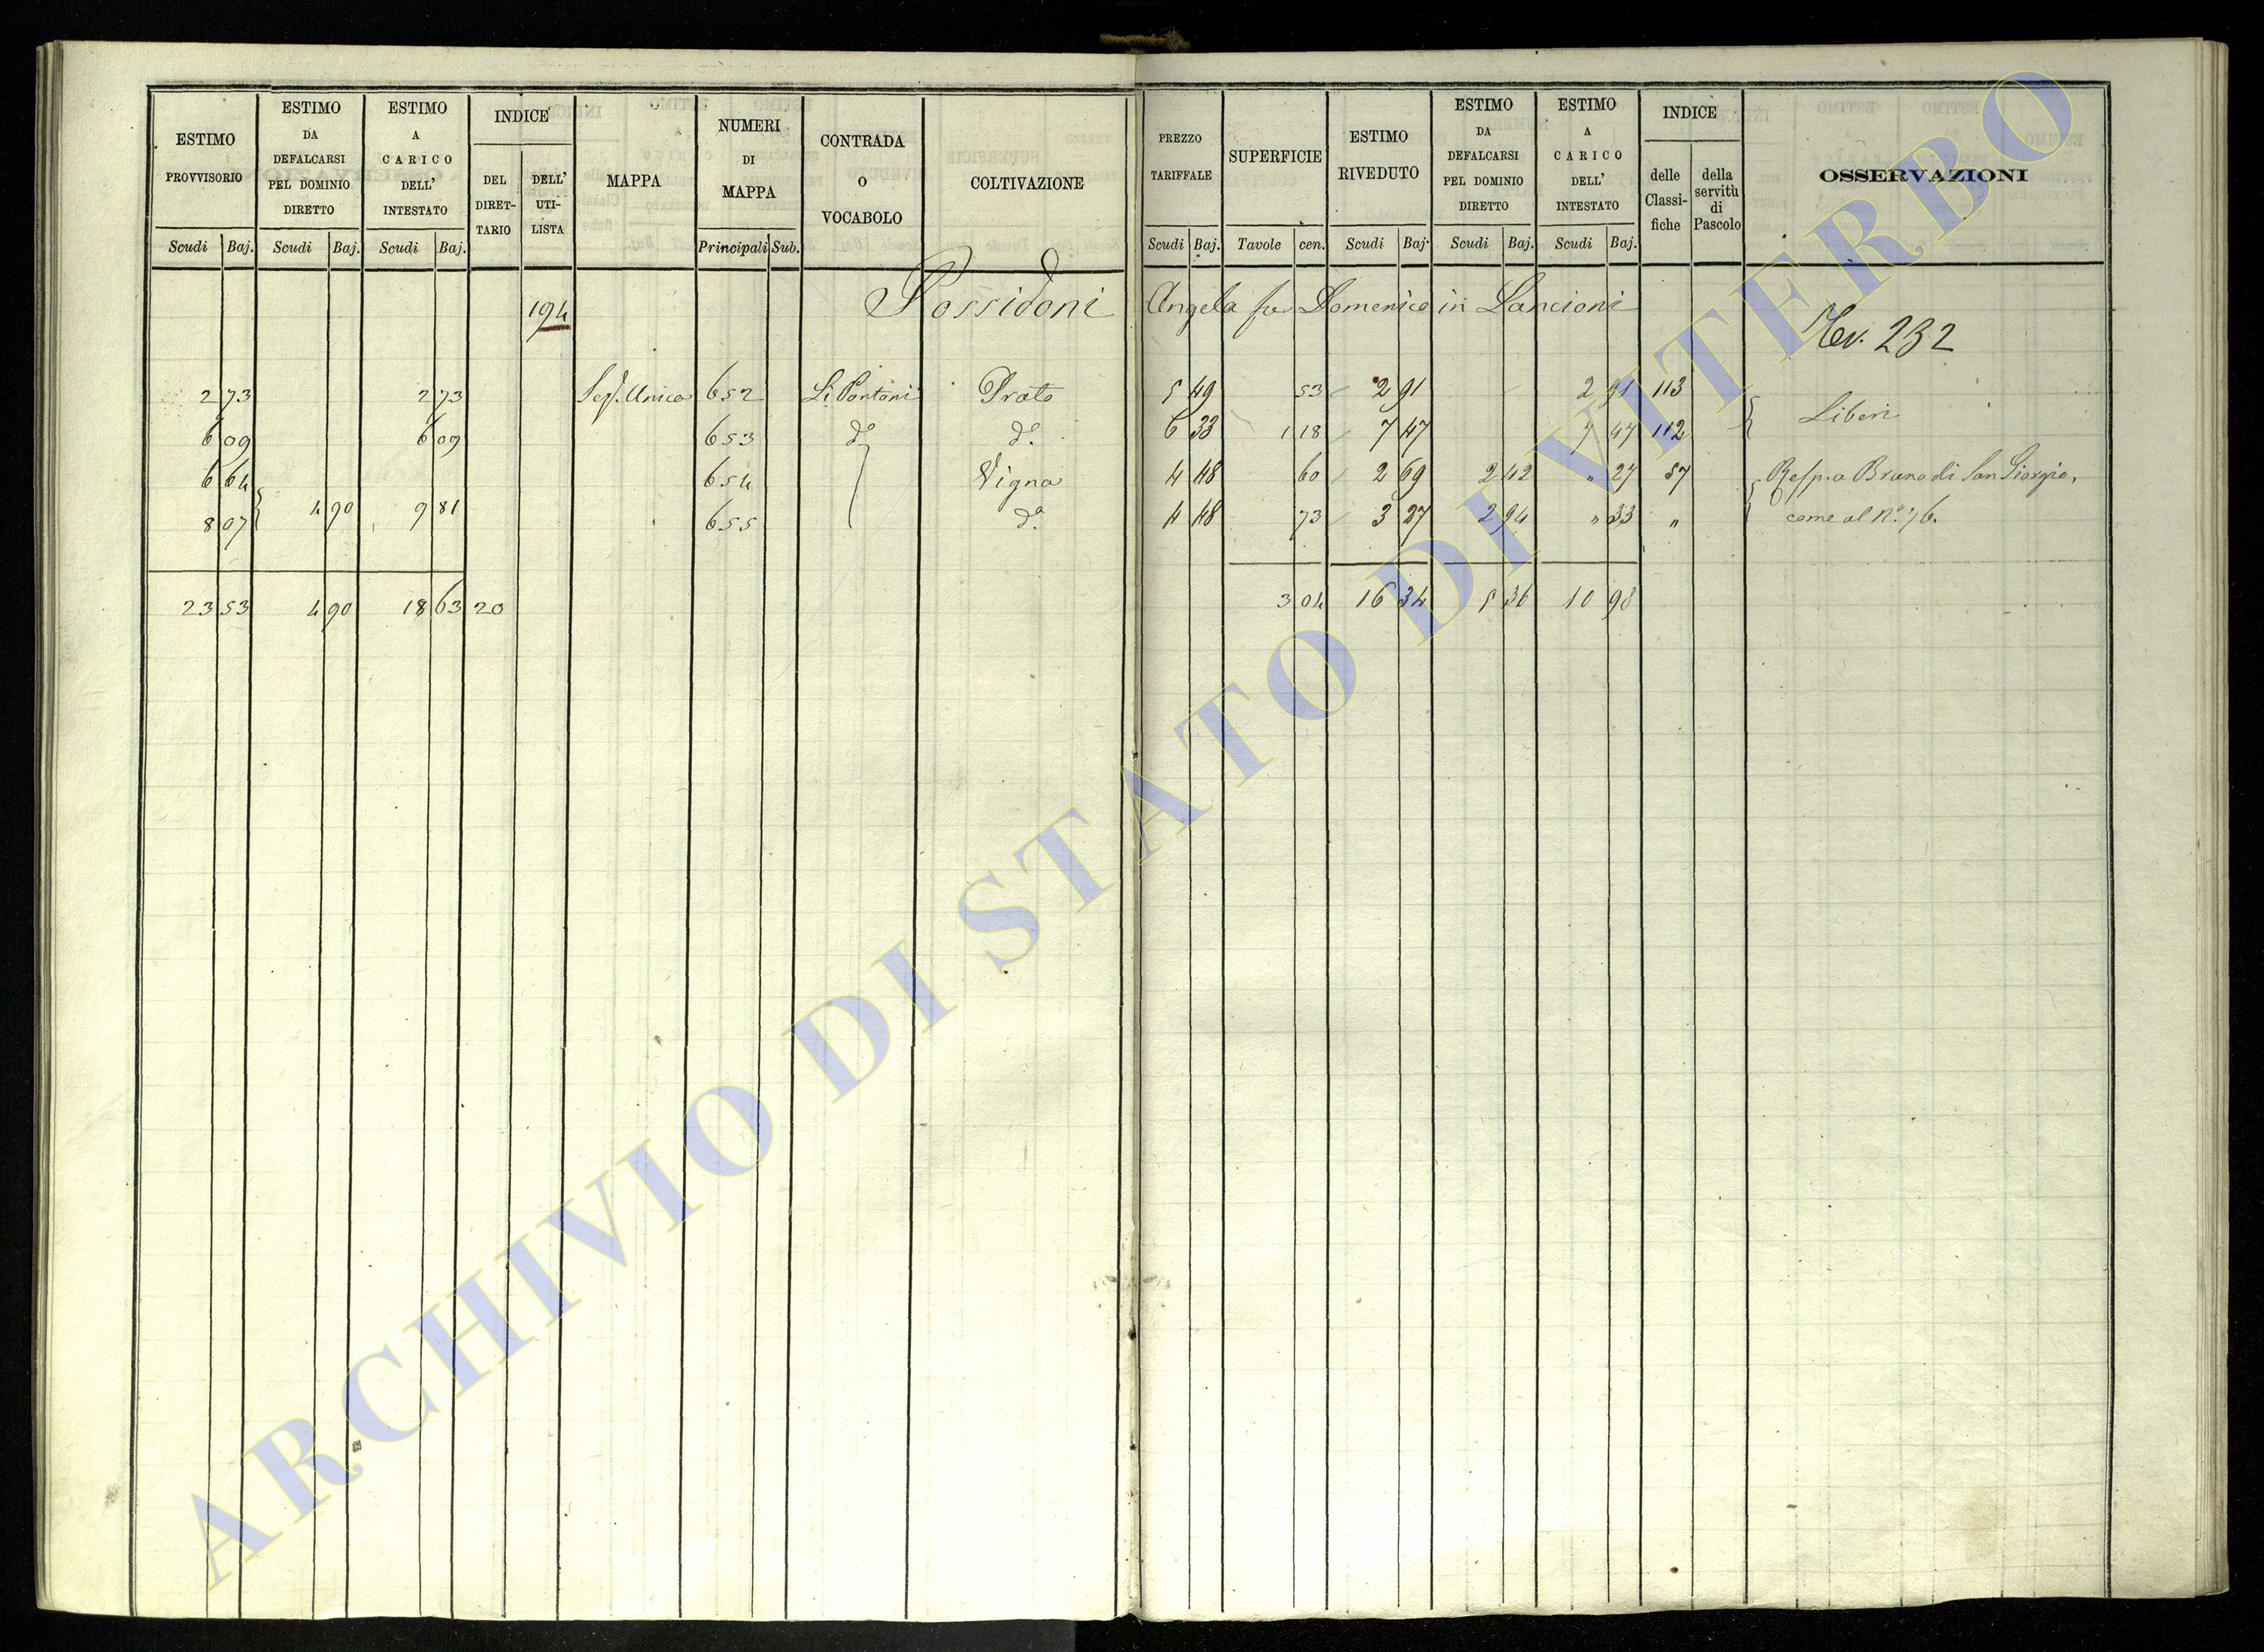 ESTIMO PROVVISORIO | ESTIMO DA DEFALCARSI PEL DOMINIO DIRETTO | ESTIMO A CARICO DELL' INTESTATO | INDICE | MAPPA | NUMERI DI MAPPA | CONTRADA O VOCABOLO | COLTIVAZIONE | PREZZO TARIFFALE | SUPERFICIE | ESTIMO RIVEDUTO | ESTIMO DA DEFALCARSI PEL DOMINIO DIRETTO | ESTIMO A CARICO DELL' INTESTATO | INDICE | OSSERVAZIONI
DEL DIRET-TARIO | DELL' UTI-LISTA | delle Classi-fiche | della servitù di Pascolo
Scudi Baj. | Scudi Baj. | Scudi Baj. | Principali Sub. | Scudi Baj. | Tavole cen. | Scudi Baj. | Scudi Baj. | Scudi Baj.
194 Possidoni Angela fu Domenico in Lancioni
Rev. 232
2 73 | 2 73 | Sez. Unica | 652 | Li Pantani | Prato | 5 49 | 53 | 2 91 | 2 91 | 113
6 09 | 6 09 | 653 | do | do. | 6 33 | 1 18 | 7 47 | 7 47 | 112 | Liberi
6 64 | 654 | Vigna | 4 48 | 60 | 2 69 | 2 42 | " 27 | 57 | Resp.a Bruno di San Giorgio,
8 07 | 4 90 | 9 81 | 655 | do. | 4 48 | 73 | 3 27 | 2 94 | " 33 | " | come al No.
23 53 | 4 90 | 18 63 | 20 | 3 04 | 16 34 | 5 36 | 10 98
ARCHIVIO DI STATO DI VITERBO